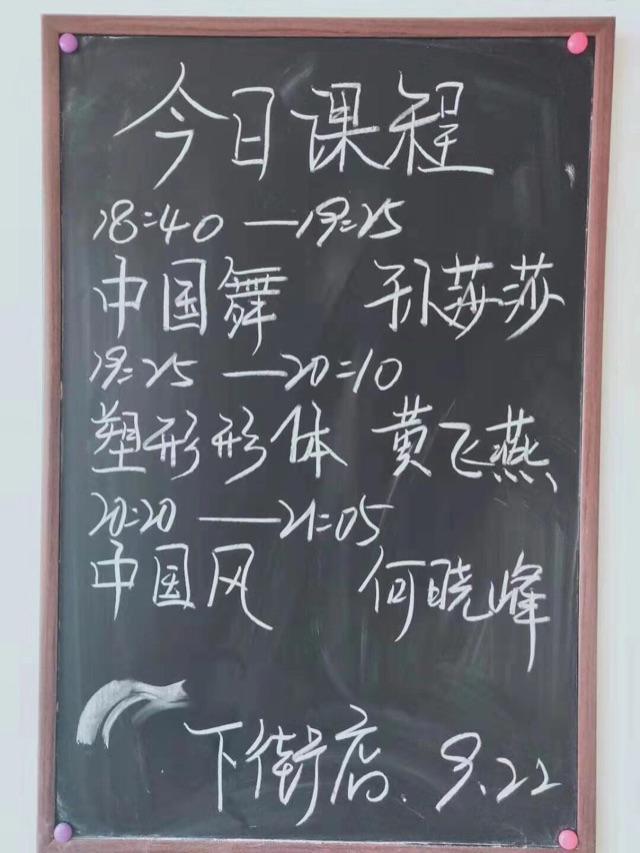 今日课程
18:40—19:25
中国舞 孙莎莎
19:25—20:10
塑形形体 黄飞燕
20:20—21:05
中国风 何晓峰
下街店、9.22